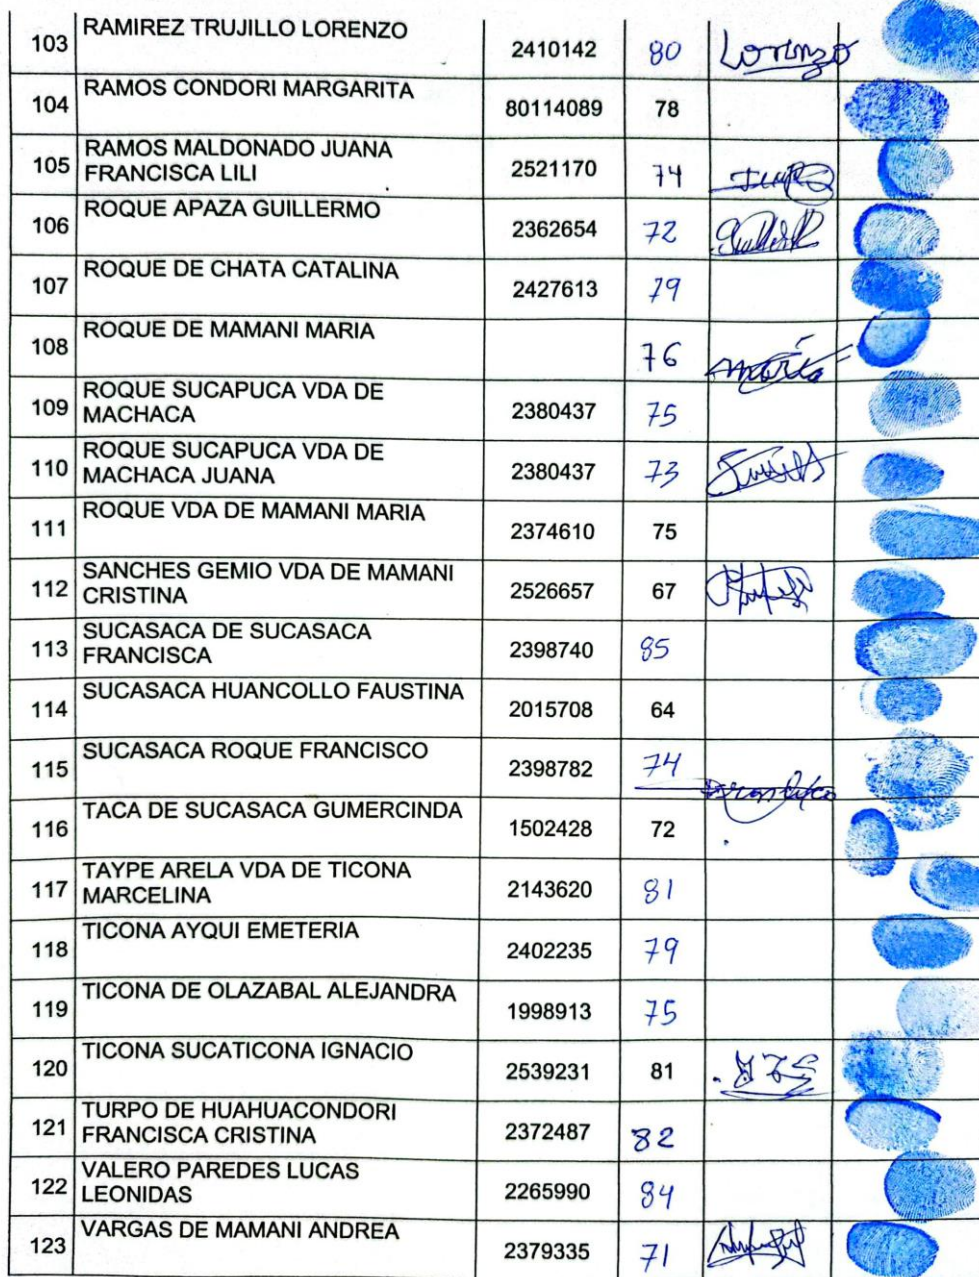 103 RAMIREZ TRUJILLO LORENZO 2410142 80 Lorenzo
104 RAMOS CONDORI MARGARITA 80114089 78
105 RAMOS MALDONADO JUANA
FRANCISCA LILI 2521170 74
106 ROQUE APAZA GUILLERMO 2362654 72
107 ROQUE DE CHATA CATALINA 2427613 79
108 ROQUE DE MAMANI MARIA 76 María
109 ROQUE SUCAPUCA VDA DE
MACHACA 2380437 75
110 ROQUE SUCAPUCA VDA DE
MACHACA JUANA 2380437 73
111 ROQUE VDA DE MAMANI MARIA 2374610 75
112 SANCHES GEMIO VDA DE MAMANI
CRISTINA 2526657 67
113 SUCASACA DE SUCASACA
FRANCISCA 2398740 85
114 SUCASACA HUANCOLLO FAUSTINA 2015708 64
115 SUCASACA ROQUE FRANCISCO 2398782 74
116 TACA DE SUCASACA GUMERCINDA 1502428 72
117 TAYPE ARELA VDA DE TICONA
MARCELINA 2143620 81
118 TICONA AYQUI EMETERIA 2402235 79
119 TICONA DE OLAZABAL ALEJANDRA 1998913 75
120 TICONA SUCATICONA IGNACIO 2539231 81
121 TURPO DE HUAHUACONDORI
FRANCISCA CRISTINA 2372487 82
122 VALERO PAREDES LUCAS
LEONIDAS 2265990 84
123 VARGAS DE MAMANI ANDREA 2379335 71